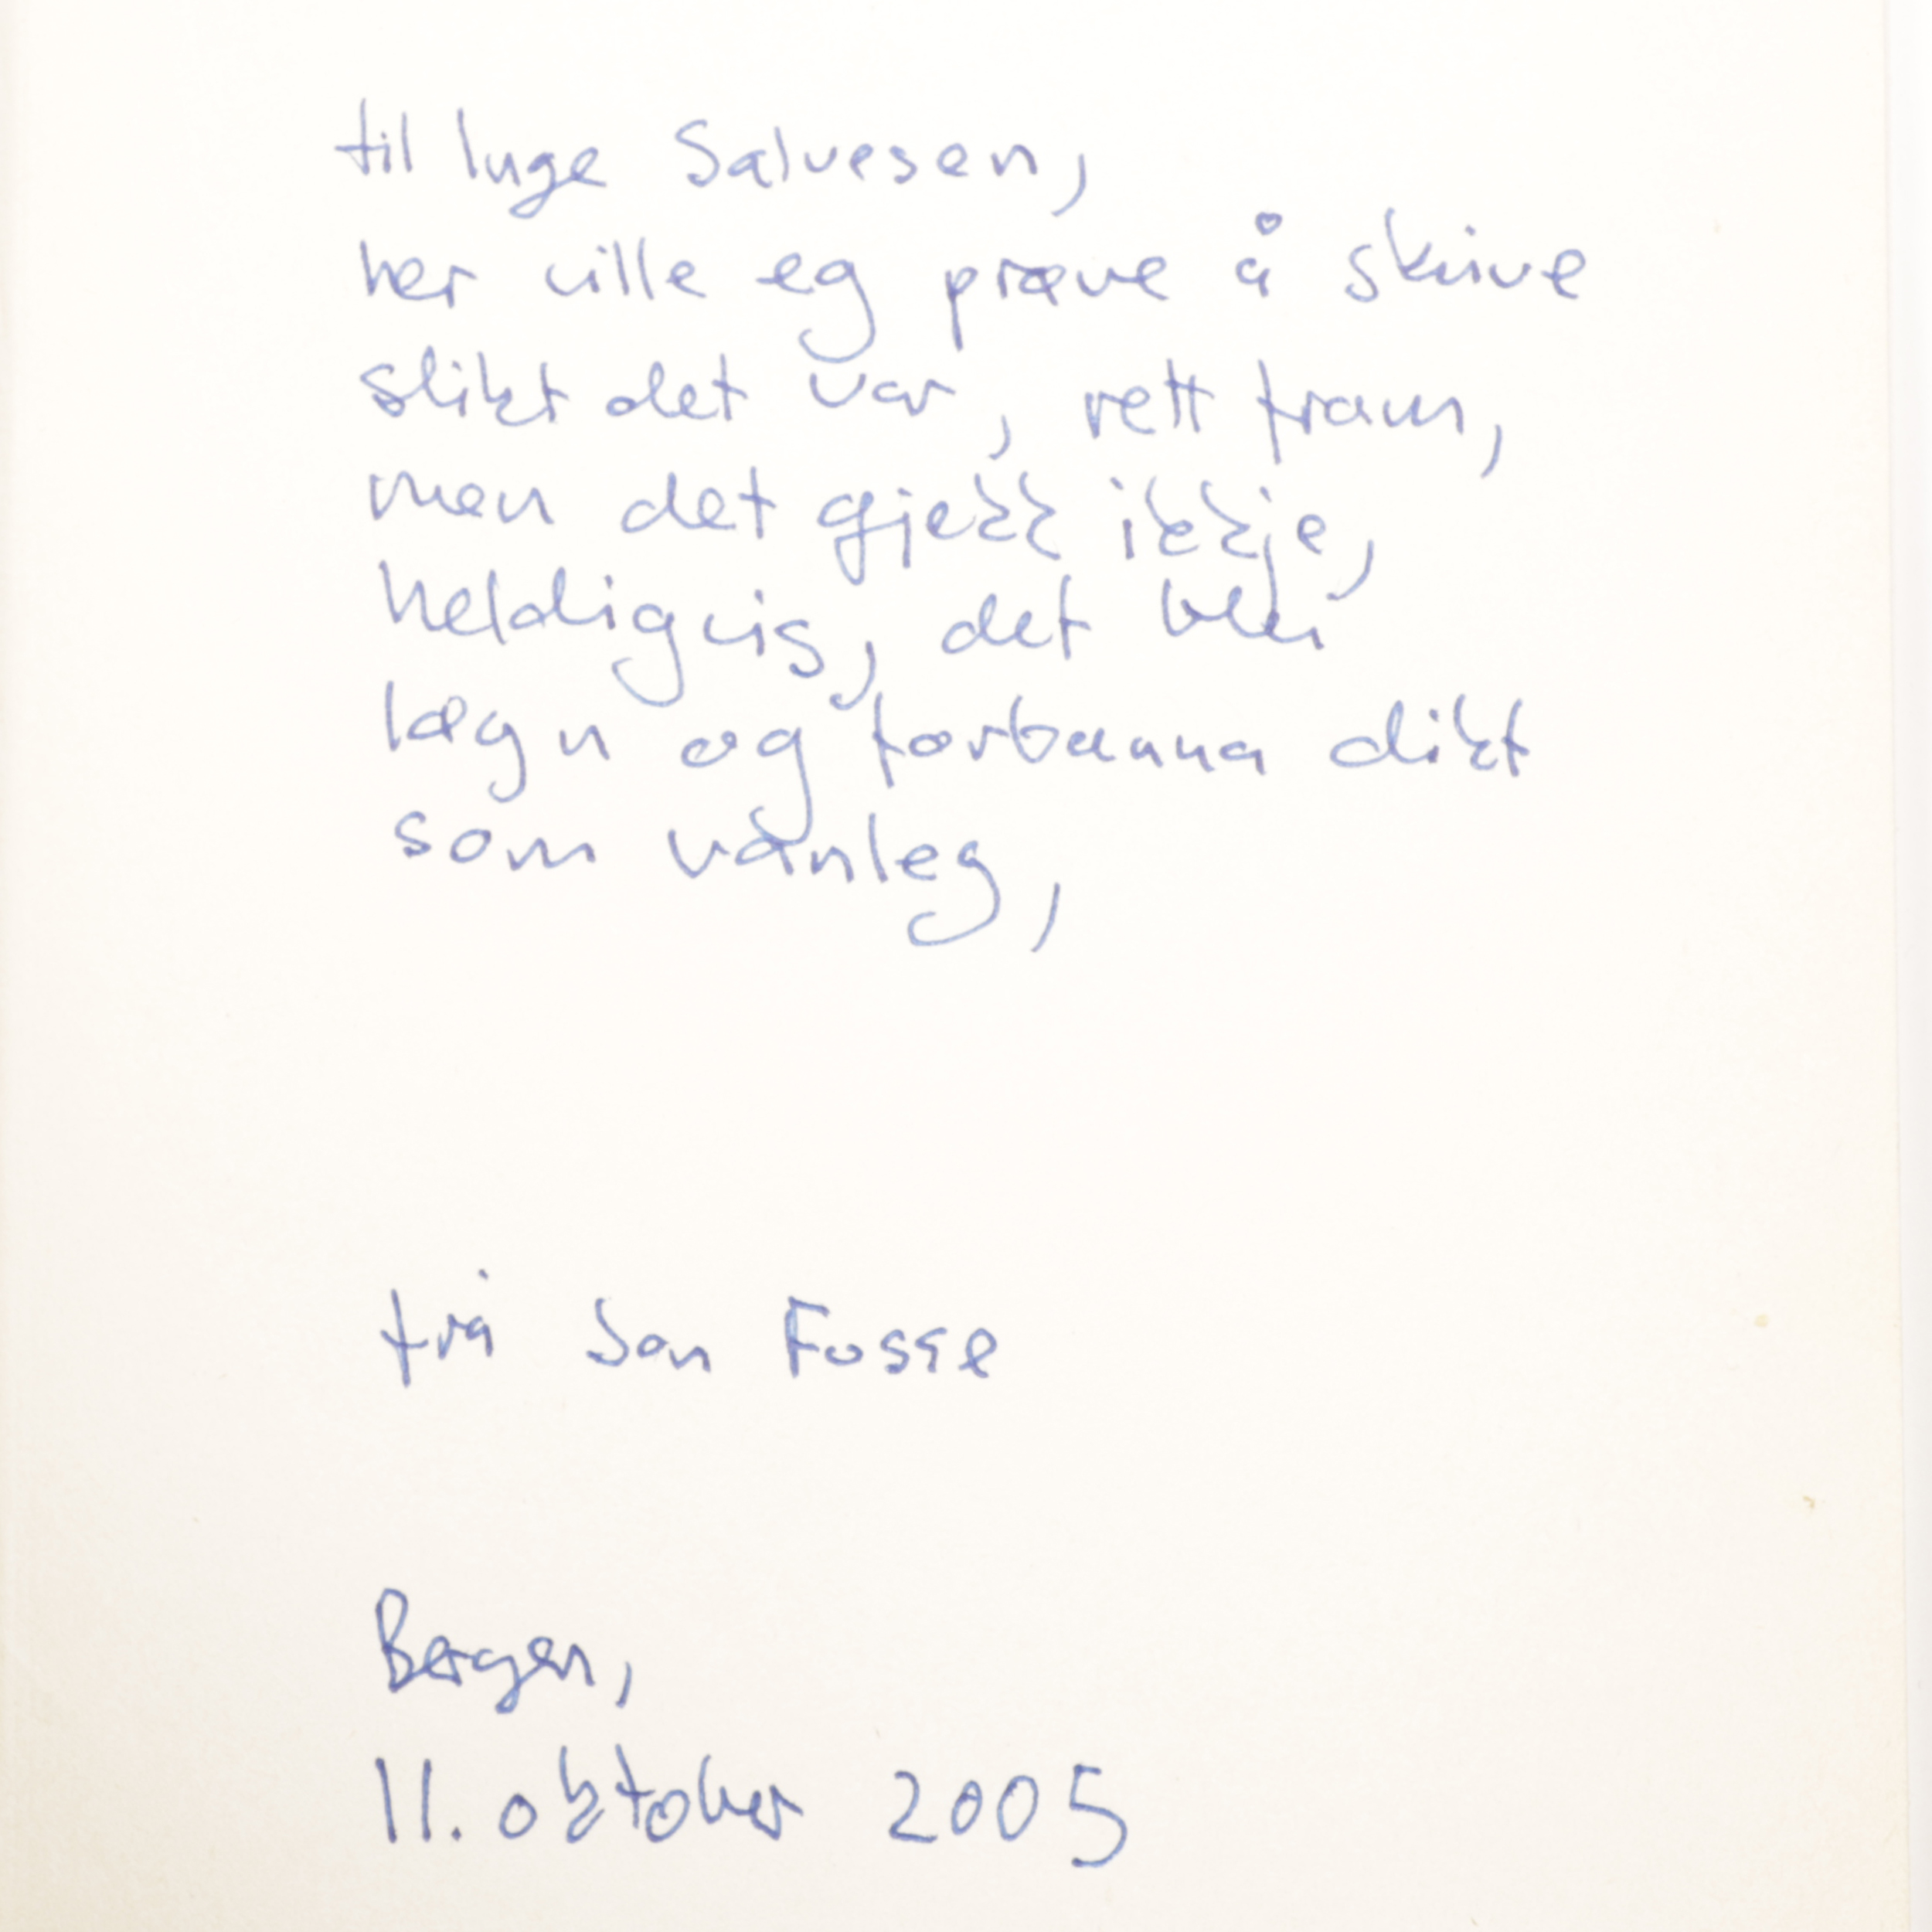 til Inge Salvesen,
her ville eg prøve å skrive
slikt det var, rett fram,
men det gjekk ikkje,
heldigvis, det blei
løgn og forbanna dikt
som vanleg,
frå Jon Fosse
Bergen,
11. oktober 2005